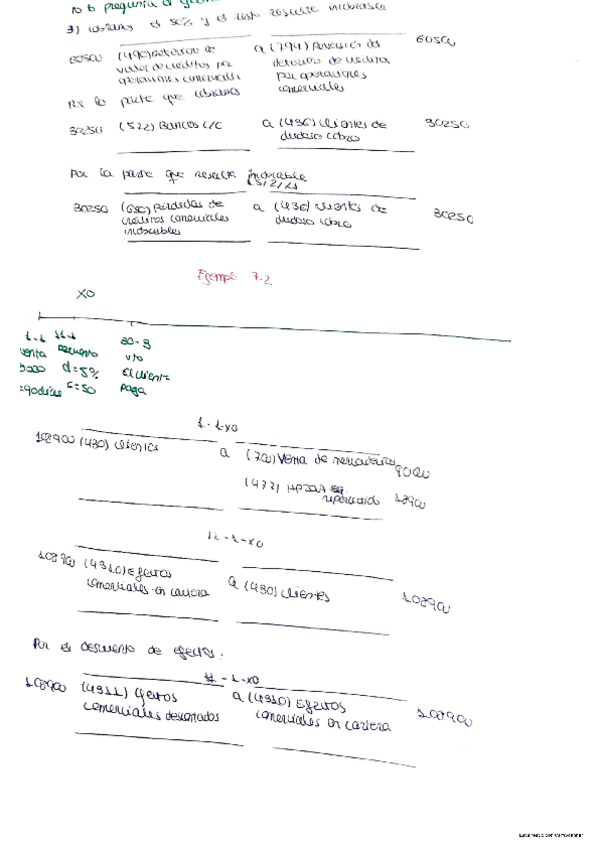 no b pregunta
3) cobramos el 50% y el resto resulta incobrable
60500 (490) Deterioro de a (794) Reversión del 60500
valor de créditos por deterioro de créditos
operaciones comerciales por operaciones
comerciales
Por la parte que cobramos
30250 (572) Bancos c/c a (436) Clientes de 30250
dudoso cobro
Por la parte que resulta incobrable
30250 (650) Pérdidas de a (436) clientes de 30250
créditos comerciales dudoso cobro
incobrables
Ejemplo 7.2
X0
1-1 11-1 30-3
venta descuento vto
d=5% El cliente
c=50 paga
1-1-X0
108900 (430) clientes a (700) Venta de mercaderías 90000
(472) HP IVA repercutido 18900
11-1-X0
108900 (4310) Efectos a (430) clientes 108900
comerciales en cartera
Por el descuento de efectos:
11-1-X0
108900 (4311) Efectos a (4310) Efectos 108900
comerciales descontados comerciales en cartera